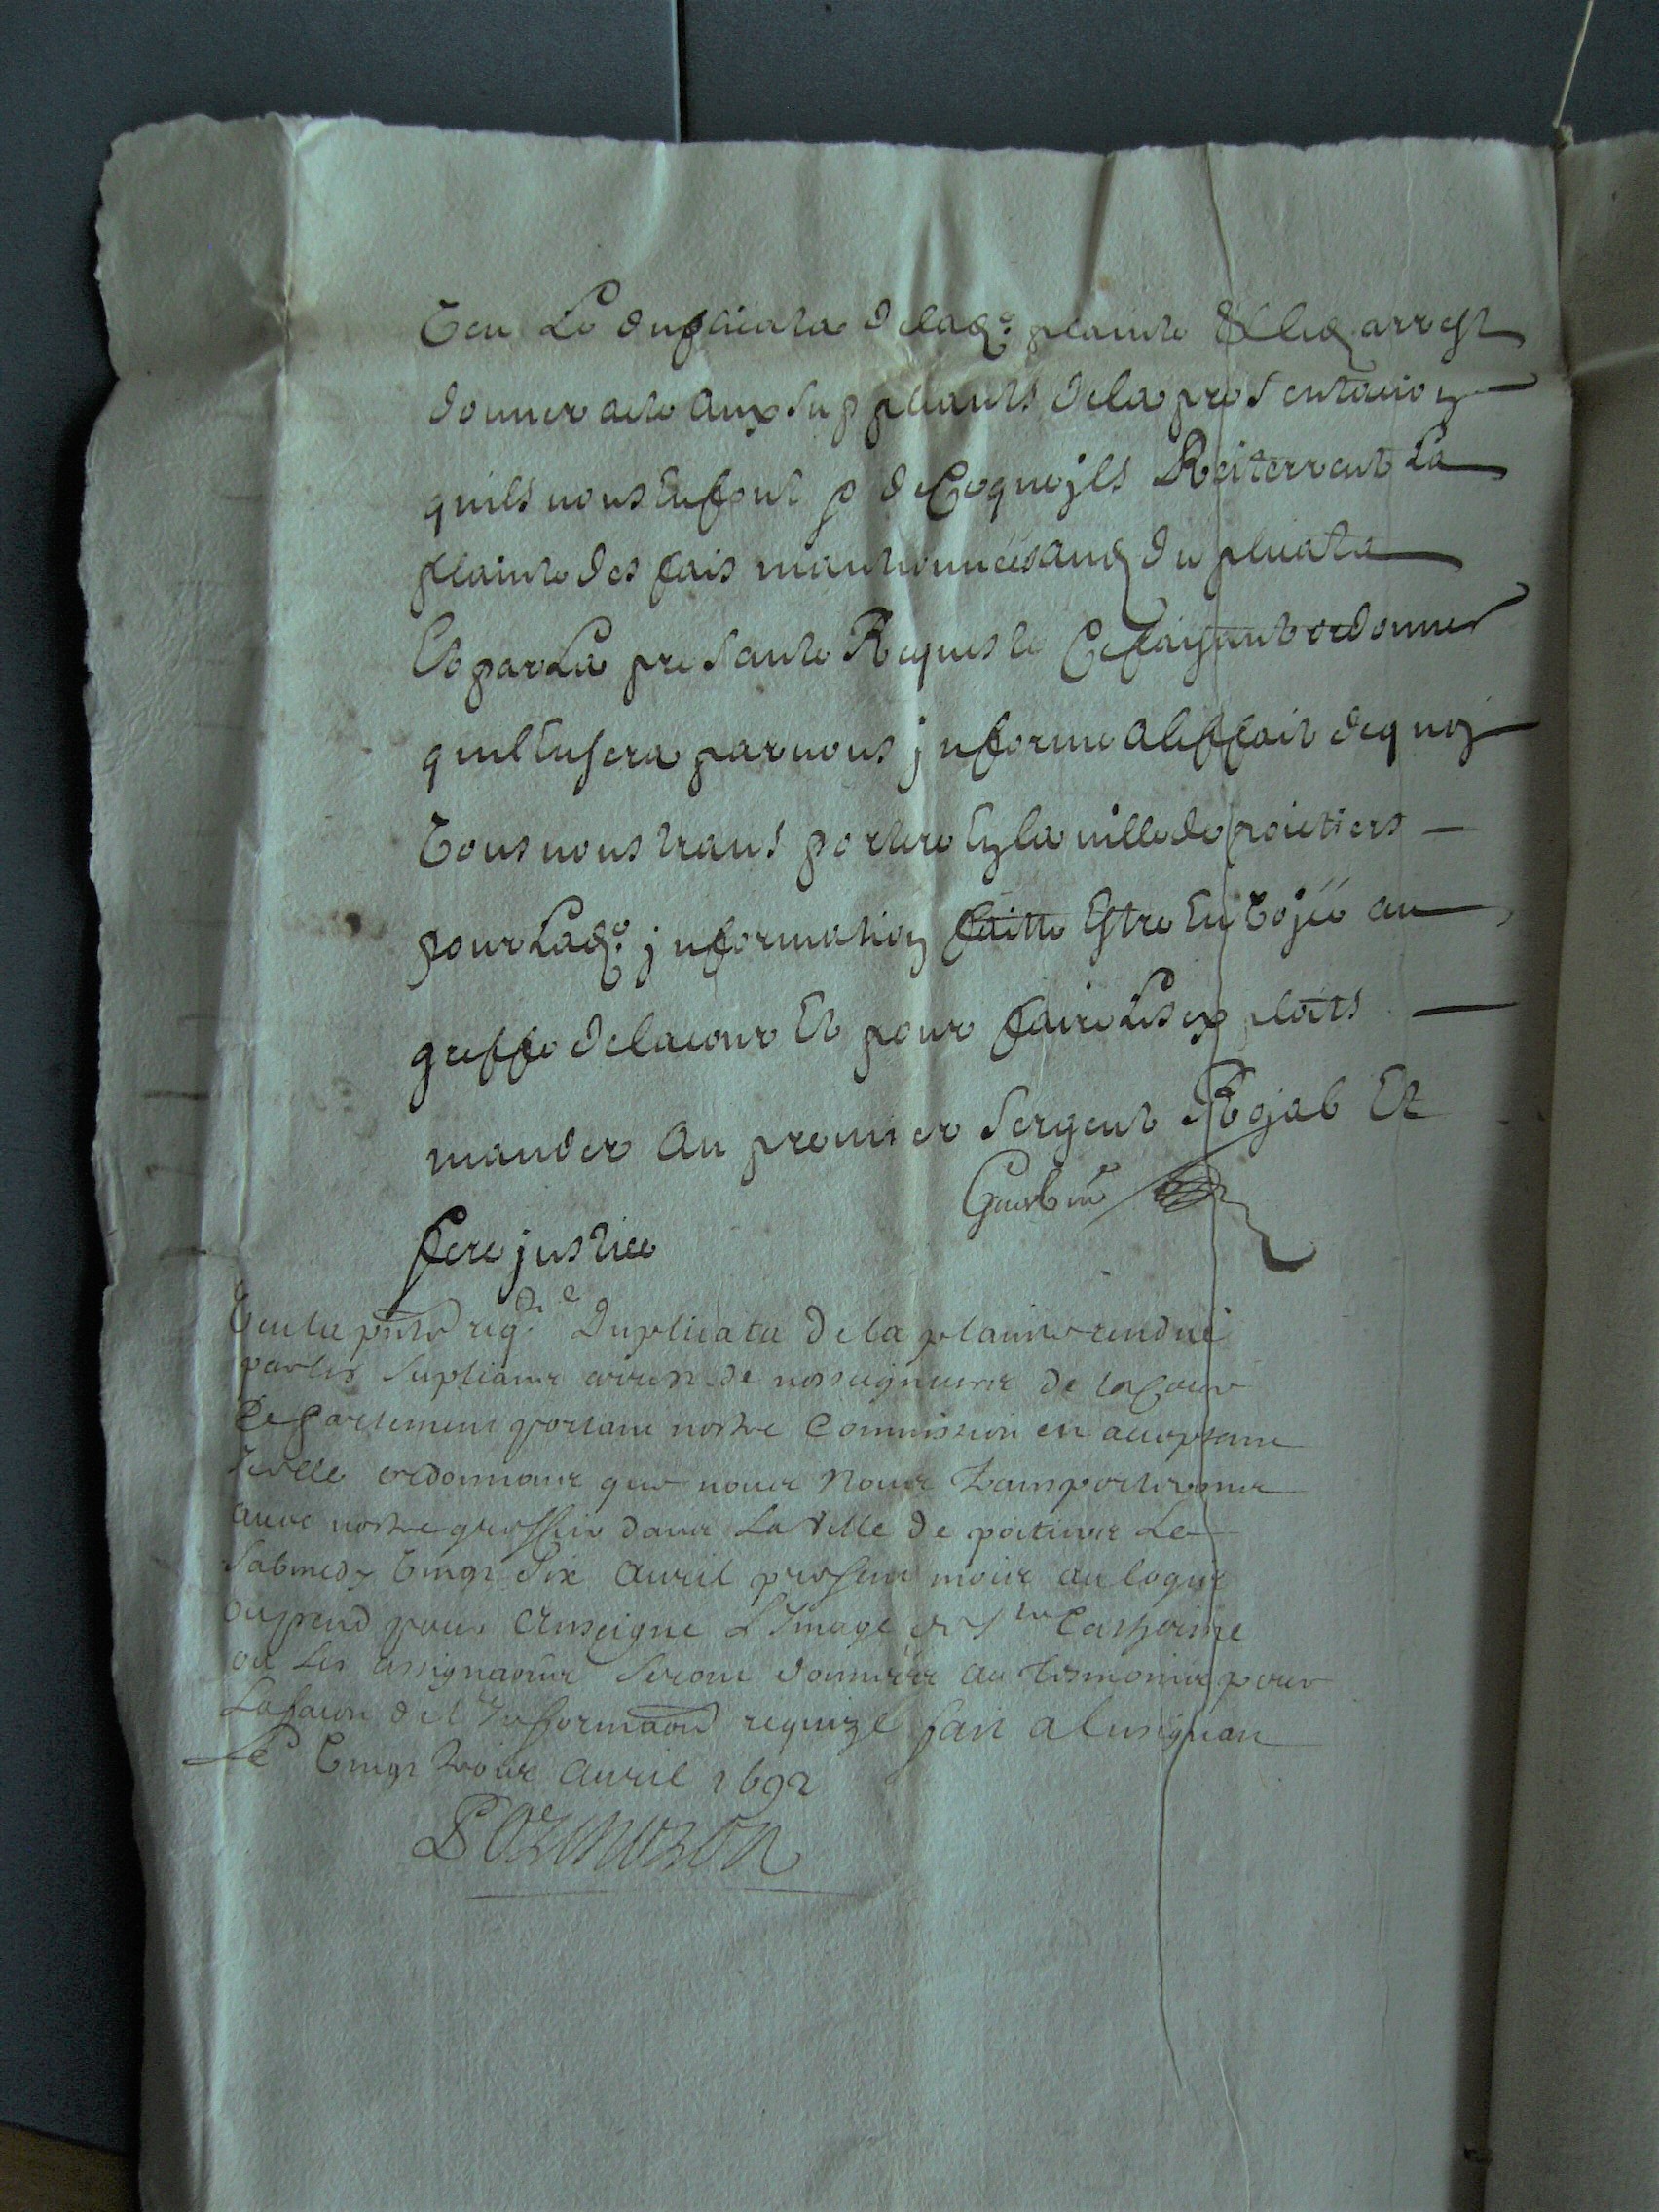 Veu Le duplicata de lad.e plainte & led arrest
donner acte aux suppliants de la presentation
quils nous en font & de ce que jls Reiterrent La
plainte des fais mantionnées aud duplicata
Et par La presante Requeste Ce faisant ordonner
quil en sera par nous jnformé a leffait de quoy
Vous nous transportere en la ville de poictiers
pour Lad.e jnformation faitte Estre Envojéé au
greffe de la cour Et pour faire Les exploits
mander au premier sergent Rojal Et
fere justice
Veu la pnte reqte Duplicata de la plainte rendue
par les supliants arrest de nosseigneurs de la Cour
de parlement portant nostre Commission en acceptant
Icelle ordonnons que nous Nous transporterons
avec nostre greffier dans La Ville de poitiers Le
Sabmedy Vingt Six avril present mois au logis
ou pend pour Enseigne L'Image de Ste Catherine
ou Les assignaons seront donnéés au tesmoins pour
La facon de l'Informaon requize fait a lusignan
Le Vingt trois avril 1692